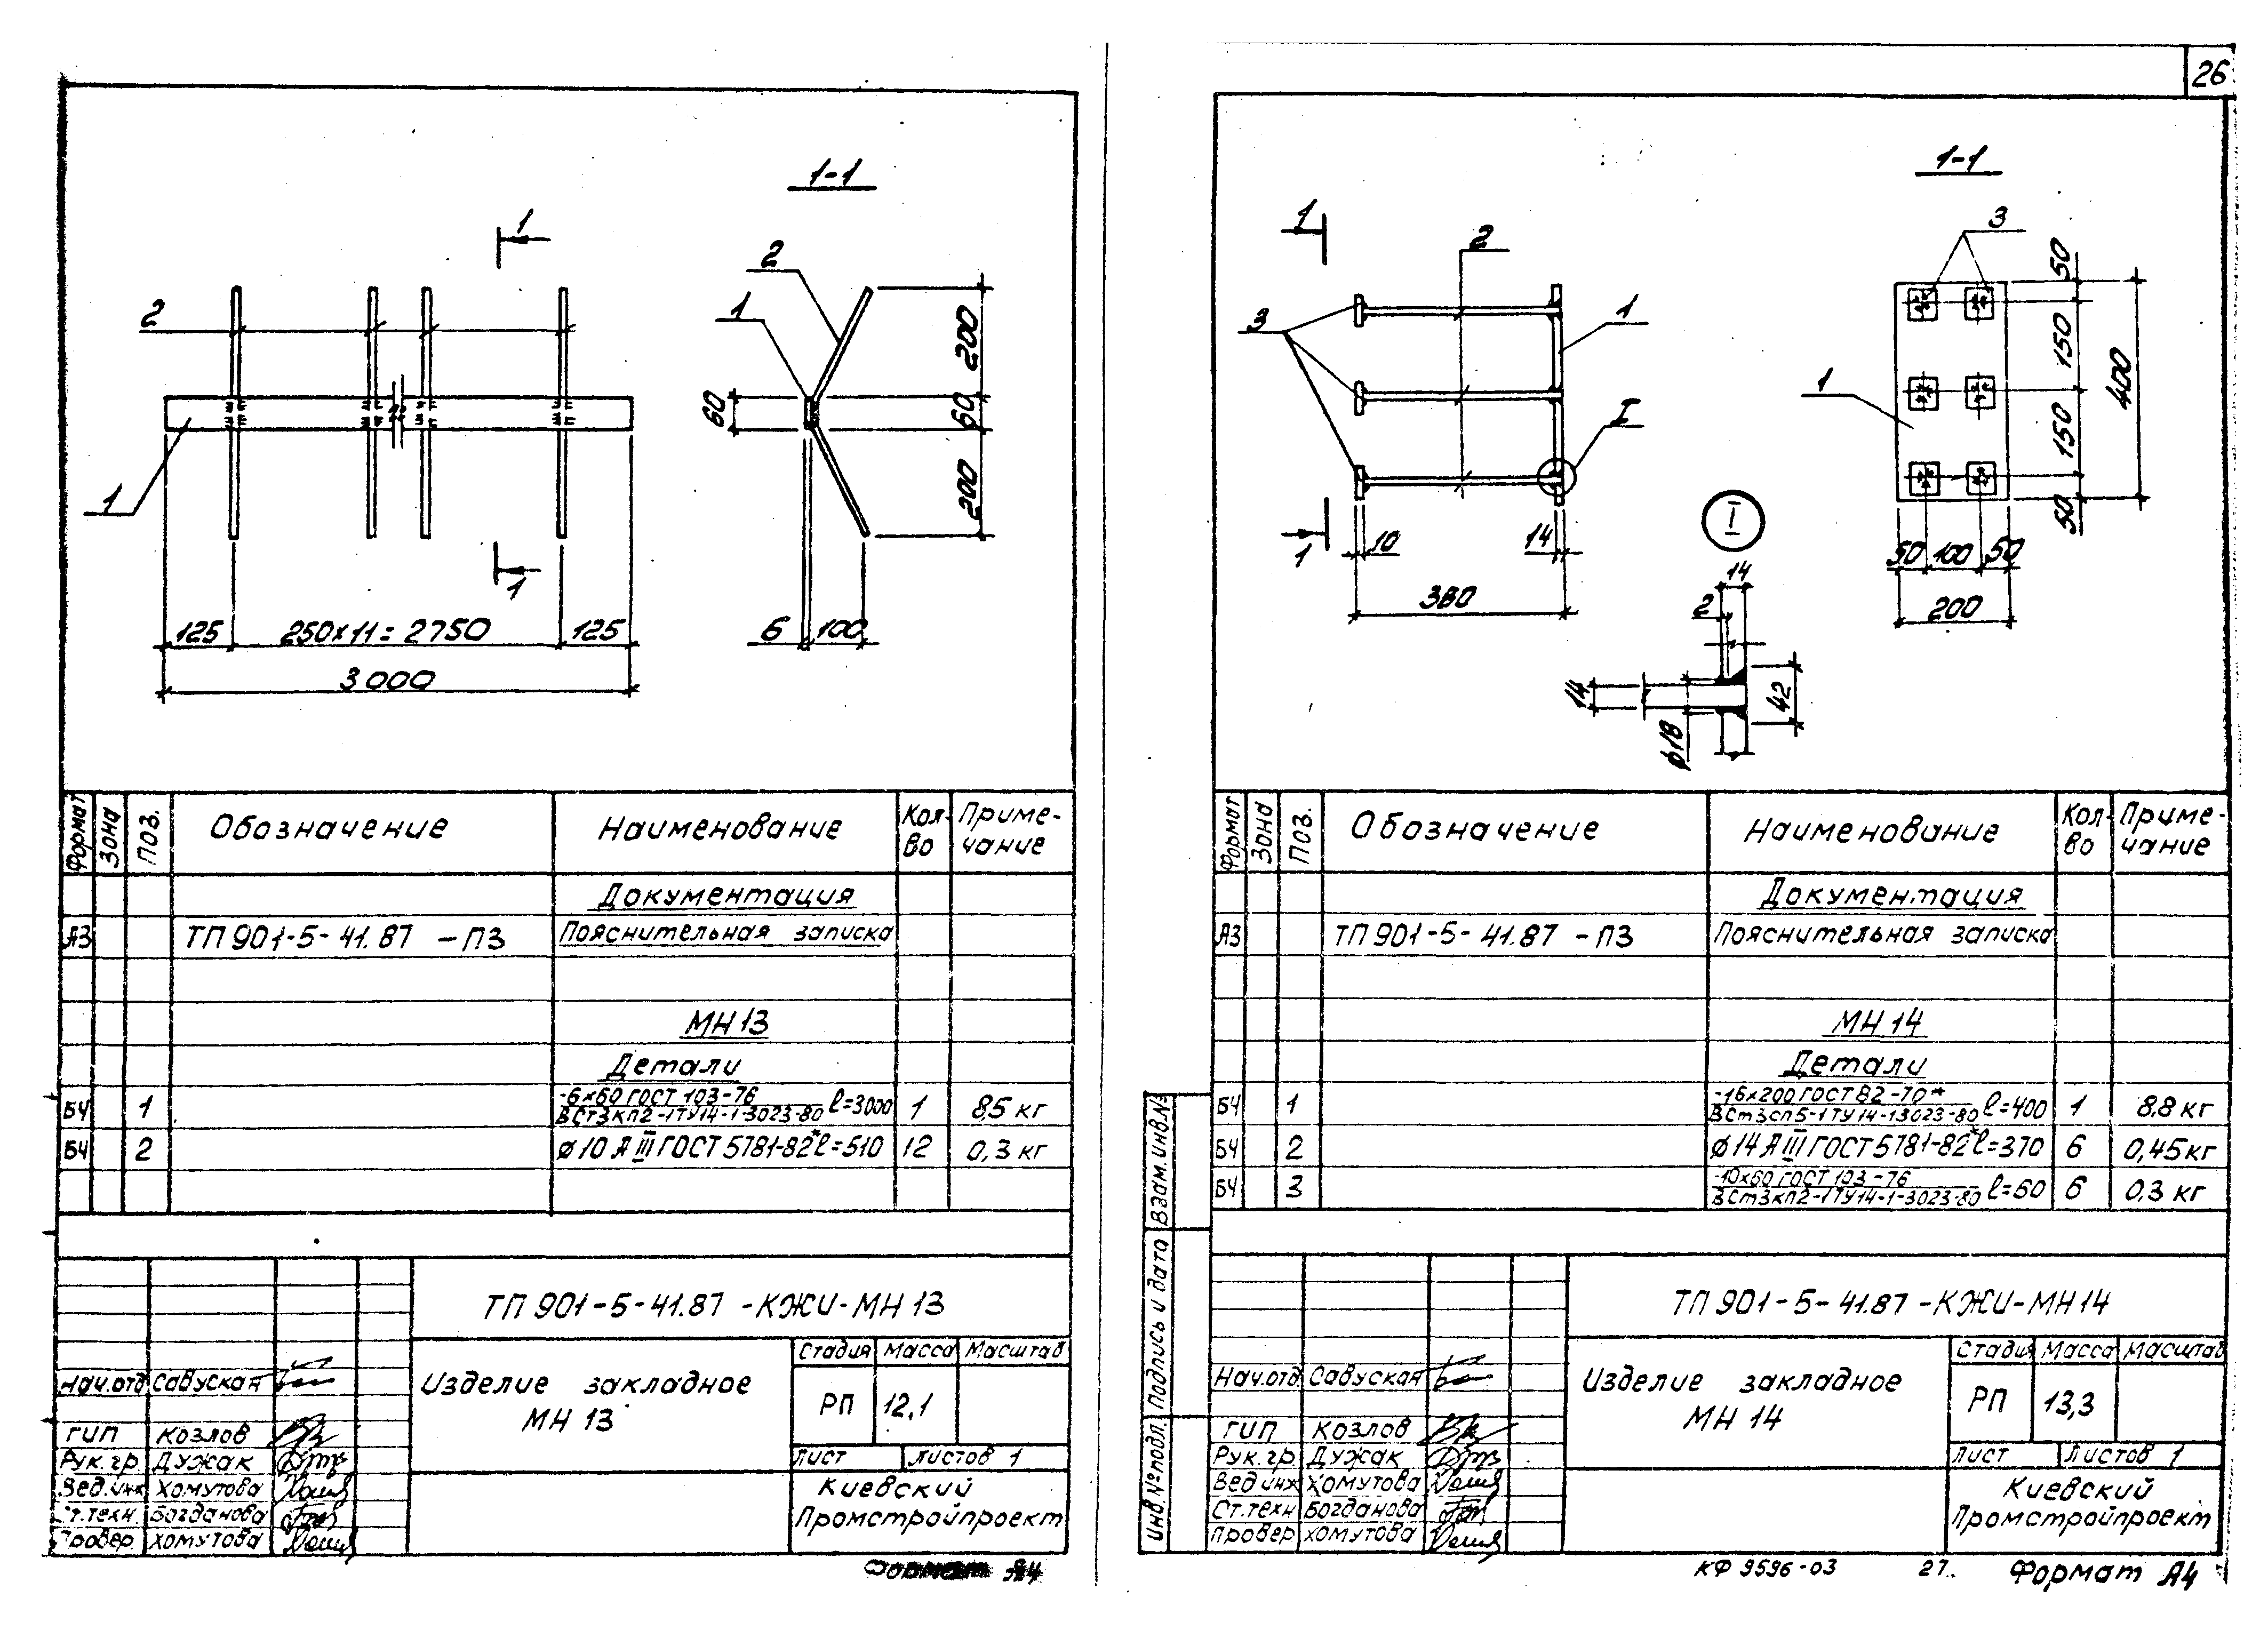 26
1-1
1
2
1
2
1
1
200
60
60
200
125
250×11=2750
125
3000
6
100
Формат
Зона
Поз.
Обозначение
Наименование
Кол-во
Примечание
Документация
А3
ТП 901-5-41.87 -ПЗ
Пояснительная записка
МН 13
Детали
БЧ 1 -6×60 ГОСТ 103-76 ВСт3кп2-1ТУ14-1-3023-80 ℓ=3000 1 8,5 кг
БЧ 2 ⌀10 А III ГОСТ 5781-82* ℓ=510 12 0,3 кг
ТП 901-5-41.87 -КЖИ-МН 13
Изделие закладное
МН 13
Стадия Масса Масштаб
РП 12,1
Лист Листов 1
Киевский
Промстройпроект
Нач.отд. Савуская
ГИП Козлов
Рук.гр. Дужак
Вед.инж Хомутова
Ст.техн. Богданова
Провер. Хомутова
Формат А4
1-1
1
2
3
1
I
1
10
14
380
3
1
50
150
150
50
400
50
100
50
200
I
14
2
14
42
⌀18
Формат
Зона
Поз.
Обозначение
Наименование
Кол-во
Примечание
Документация
А3
ТП 901-5-41.87 -ПЗ
Пояснительная записка
МН 14
Детали
БЧ 1 -16×200 ГОСТ 82-70* ВСт3сп5-1ТУ14-13023-80 ℓ=400 1 8.8 кг
БЧ 2 ⌀14 А III ГОСТ 5781-82* ℓ=370 6 0,45 кг
БЧ 3 -10×60 ГОСТ 103-76 ВСт3кп2-1ТУ14-1-3023-80 ℓ=60 6 0,3 кг
Взам.инв.№
Подпись и дата
Инв.№подл.
ТП 901-5-41.87 -КЖИ-МН 14
Изделие закладное
МН 14
Стадия Масса Масштаб
РП 13,3
Лист Листов 1
Киевский
Промстройпроект
Нач.отд. Савуская
ГИП Козлов
Рук.гр. Дужак
Вед.инж Хомутова
Ст.техн Богданова
Провер Хомутова
КФ 9596-03 27. Формат А4